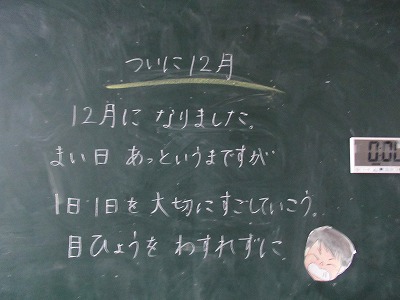 ついに12月
12月に なりました。
まい日 あっというまですが
1日1日を 大切にすごしていこう。
目ひょうを わすれずに